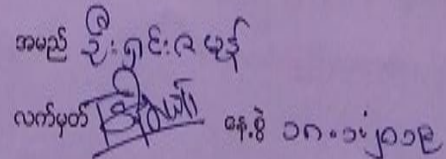 အမည် ဦးရှင်းဇမုန်
လက်မှတ် နေ့စွဲ ၁၈.၁၂.၂၀၁၉